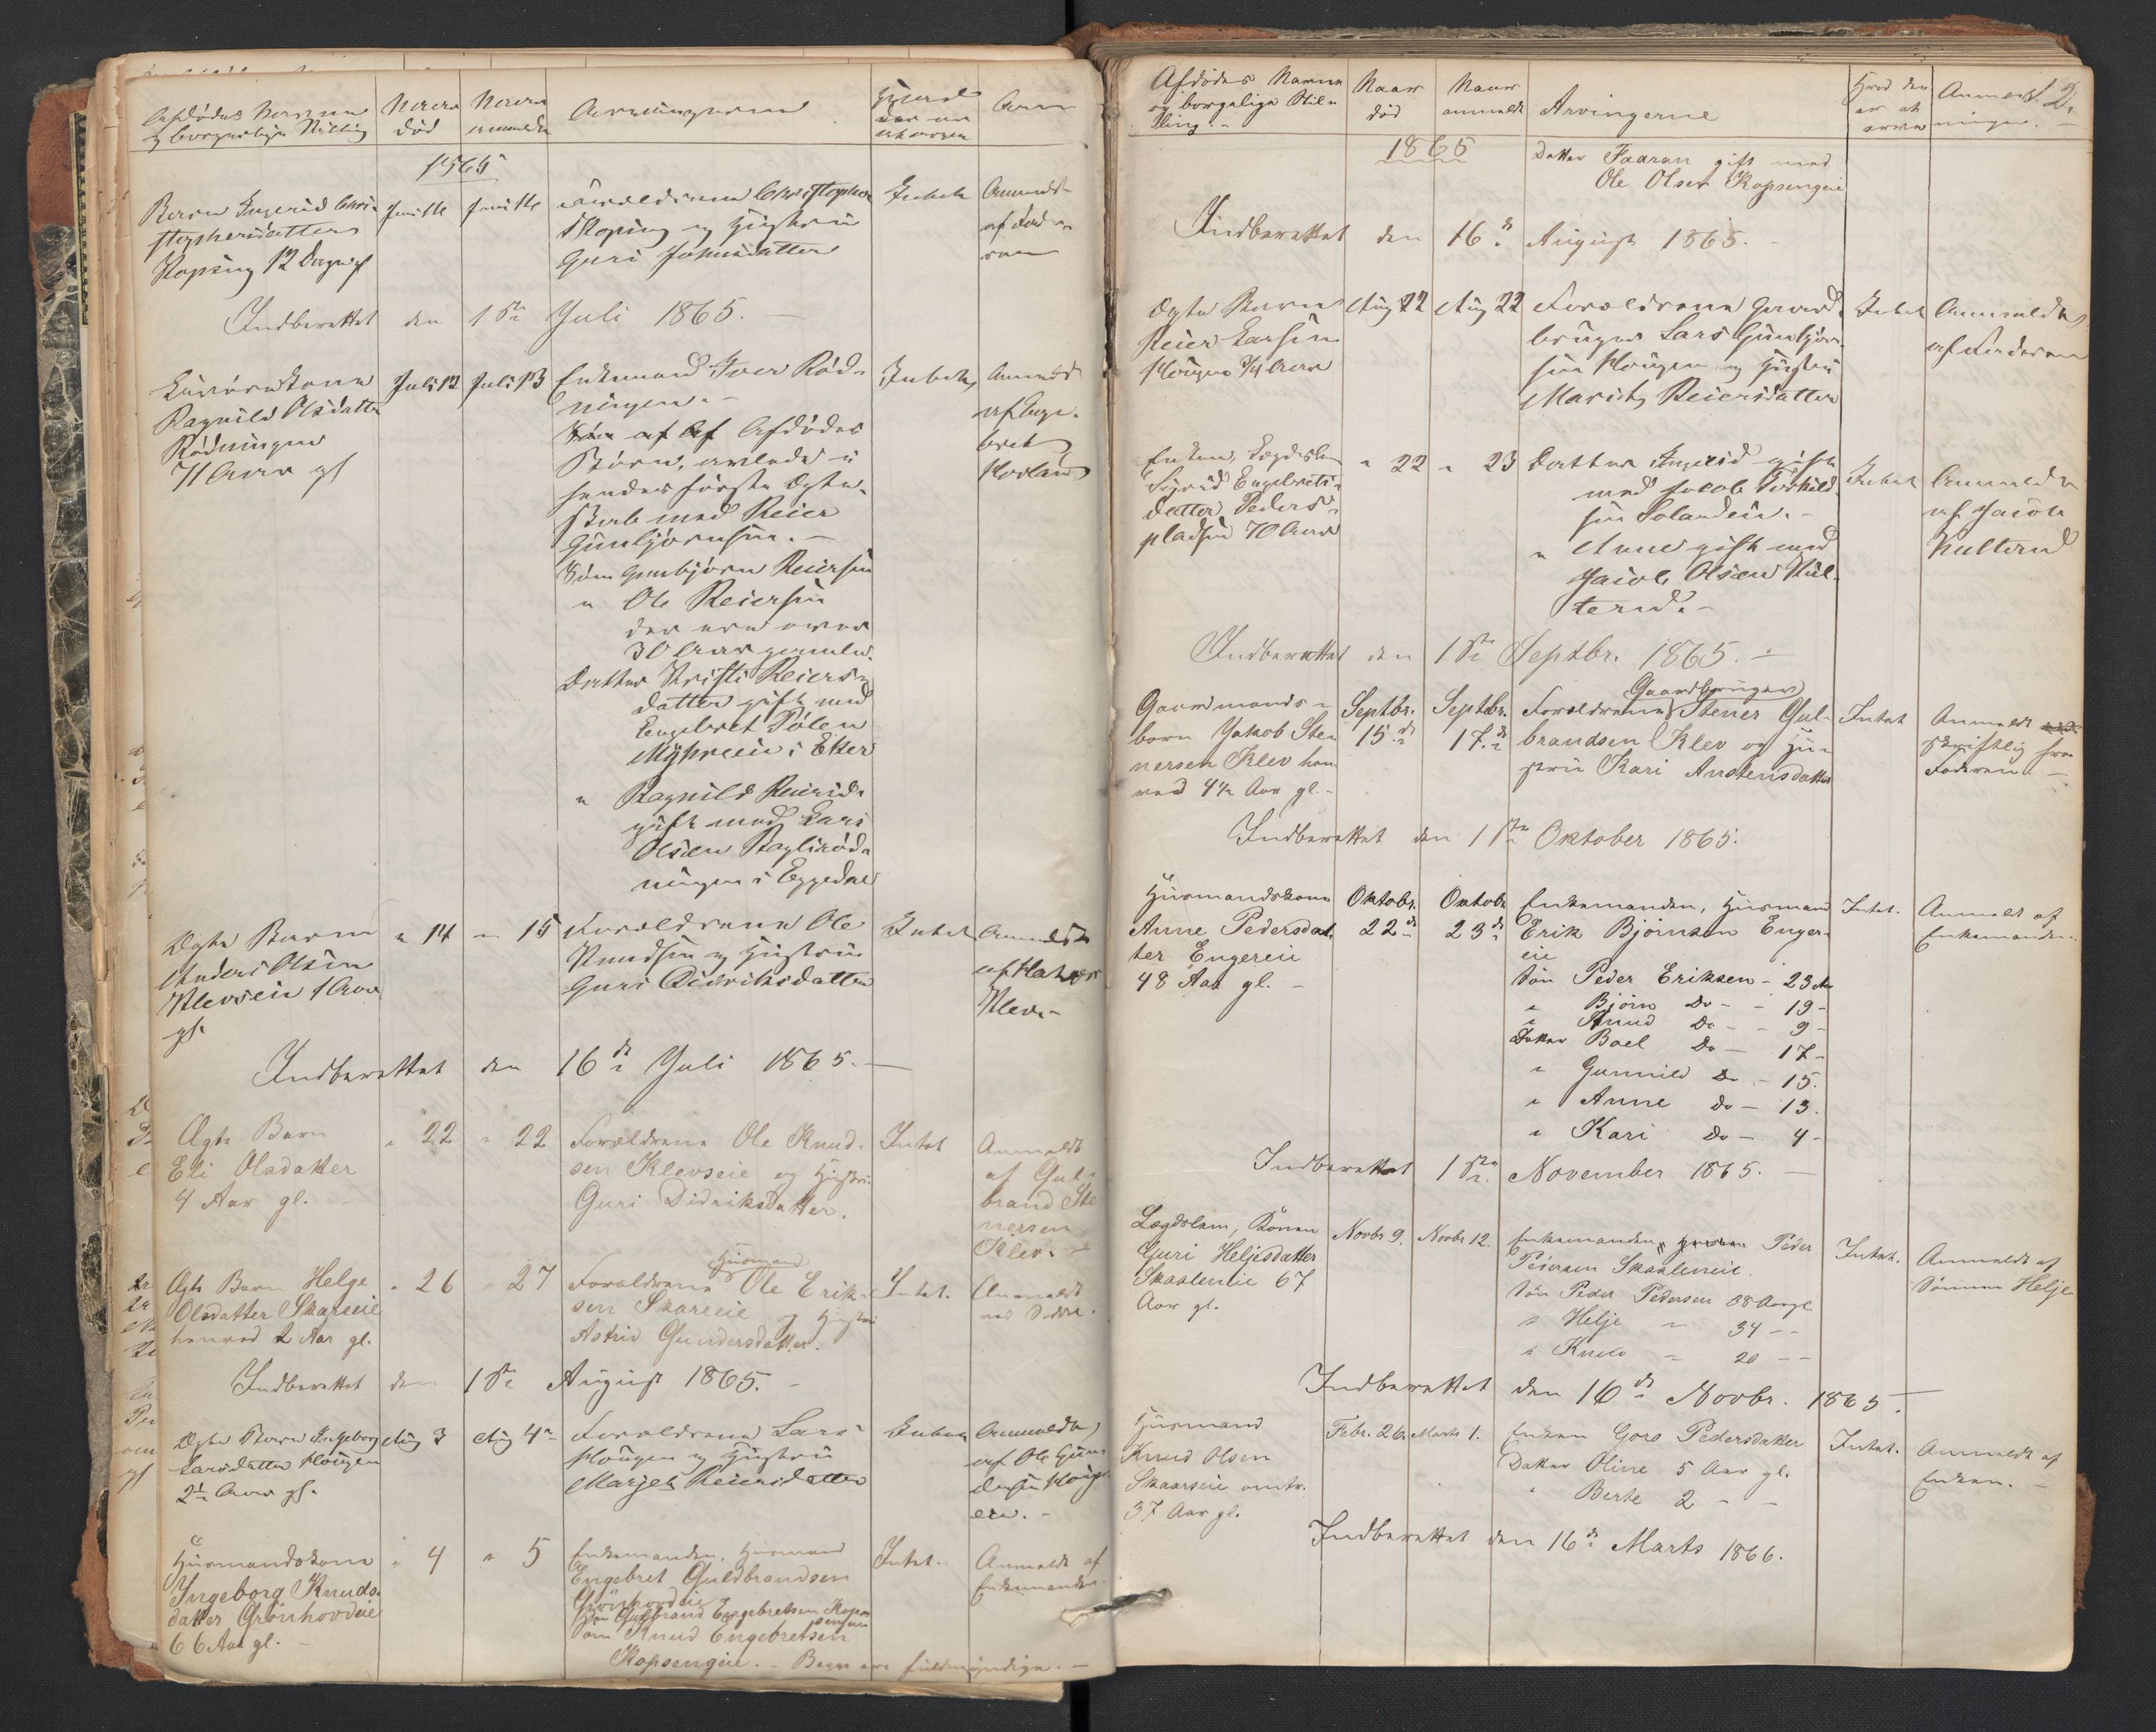 Afdødes Navn
og borgerlige Stilling
Naar
død
Naar
anmeldt
Arvingerne
Hvad
der er
at arve
Anm
1865
Barn Ingerid Chri-
stophersdatter
Kopseng 12 Dage gl
Juni
Juni
Forældrene Christopher
Kopseng og Hustru
Guri Johnsdatter
Intet
Anmeldt
af Faderen
Indberettet den 1ste Juli 1865.
Ragnild Olsdatter
Rødningen
71 Aar gl
Juli 12
Juli 13
Enkemand Iver Rød-
ningen.-
af Afdødes
Børn, avlede i
hendes første Ægte-
skab med Reier
Gunbjørnsen.-
Søn Gunbjørn Reiersen
" Ole Reiersen
der ere over
30 Aar gamle.
Datter Kristi Reiers-
datter gift med
Engebret Pølen
i Eker
" Ragnild Reiersd.
gift med Lars
Olsen
ningen i Eggedal
Intet
Anmeldt
af Enge-
bret
Hovland
Ægte Barn
Anders Olsen
Klevseie 1 Aar
gl.
" 14
" 15
Forældrene Ole
Knudsen og Hustru
Guri Didriksdatter
Intet
Anmeldt
af
Klev.-
Indberettet den 16de Juli 1865.-
Ægte Barn
Eli Olsdatter
4 Aar gl.
" 22
" 22
Forældrene Ole Knud-
sen Klevseie og Hustru
Guri Didriksdatter.
Intet
Anmeldt
af Gul-
brand Ste
nersen
Klev.-
Ægte Barn Helge
Olsdatter Skareeie
henved 2 Aar gl.
" 26
" 27
Husmand
Forældrene Ole Erik-
sen Skareeie og Hustru
Astrid Gundersdatter.
Intet.
Anmeldt
ved Do
Indberettet den 1ste August 1865.-
Ægte Barn Ingeborg
Larsdatter Hougen
2½ Aar gl.
Aug 3
Aug 4
Forældrene Lars
Hougen og Hustru
Marget Reiersdatter
Intet
Anmeldt
af Ole Gun-
dersen Houg
en.-
Husmandskone
Ingeborg Knuds-
datter Grönhovdeie
66 Aar gl.-
" 4
" 5
Enkemanden, Husmand
Engebret Guldbrandsen
Grönhovdeie
Søn Gulbrand Engebretsen Kops
engeie
Søn Knud Engebretsen
Kopsengeie.- Begge ere fuldmyndige.-
Intet.
Anmeldt af
Enkemanden.
Afdødes Navn
og borgerlige Stil-
ling.-
Naar
død
Naar
anmeldt
Arvingerne
Hvad der
er at
arve
Anmærk-
ninger.
2.
1865
Datter Faaran gift med
Ole Olsen Kopsengeie
Indberettet den 16de August 1865.-
Ægte Barn
Reier Larsen
Hougen ¾ Aar
Aug 22
Aug 22
Forældrene Gaard-
bruger Lars Gunbjørn-
sen Hougen og Hustru
Marit Reiersdatter
Intet
Anmeldt
af Faderen
Enken, Lægdslem
Sigrid Engebrets-
datter Peders-
pladsen 70 Aar
" 22
" 23
Datter Ingerid gift
med Jacob Torkild-
sen Solandeie.-
" Anne gift med
Jacob Olsen Kul-
terud.-
Intet
Anmeldt
af Jacob
Kulterud
Indberettet den 1ste Septbr. 1865.-
Gaardmands-
barn Jakob Ste-
nersen Klev hen-
ved 4½ Aar gl.-
Septbr.
15.de
Septbr.
17.de
Gaardbruger
Forældrene Stener Gul-
brandsen Klev og Hu-
stru Kari Anstensdatter
Intet
Anmeldt
skriftlig fra
Faderen.-
Indberettet den 1ste Oktober 1865.
Husmandskone
Anne Pedersdat-
ter Engereie
48 Aar gl.-
Oktobr.
22de
Oktobr
23de
Enkemanden, Husmand
Erik Bjørnsen Enger-
eie
Søn Peder Eriksen - 23 Ar
" Bjørn Do - - 19 -
" Knud Do - - 9 -
Datter Boel Do - 17 -
" Gunnild Do - 15.
" Anne Do - 13.
" Kari Do - 4 -
Intet.
Anmeldt af
Enkemanden.-
Indberettet 1ste November 1865.-
Lægdslem, Konen
Guri Heljesdatter
Skaaleneie 67
Aar gl.
Novbr 9.
Novbr 12.
Enkemanden Peder
Pedersen Skaaleneie.
Søn Peder Pedersen 38 Aar gl.
" Helje " 34 - -
" Knud " 20 - -
Intet.
Anmeldt af
Sønnen Helje
Indberettet den 16de Novbr. 1865.-
Husmand
Knud Olsen
Skaarseie omtr.
37 Aar gl.
Febr. 26.
Marts 1.
Enken Goro Pedersdatter
Datter Oline 5 Aar gl.
" Berte 2 - -
Intet.
Anmeldt af
Enken.-
Indberettet den 16de Marts 1866.